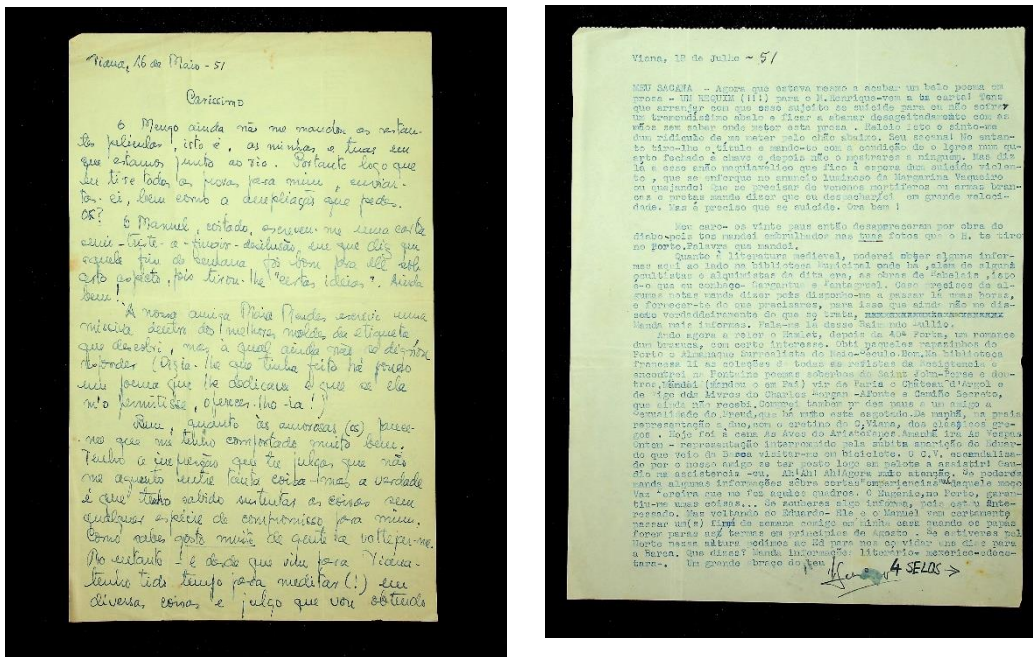 Viana, 16 de Maio - 51
Caríssimo
O Mengo ainda não me mandou as restan-
tes películas, isto é, as minhas e tuas em
que estamos junto ao rio. Portanto logo que
eu tire todas as provas para mim, enviar-
tas-ei, bem como a ampliação que pedes.
OK?
O Manuel, coitado, escreveu-me uma carta
semi-triste-a-fingir-desilusão, em que diz que
aquele fim de semana foi bom para ele sob
certo aspecto, pois tirou-lhe "certas ideias". Ainda
bem!
À nossa amiga Maria Mendes escrevi uma
missiva dentro dos melhores moldes da etiqueta
que descobri, mas à qual ainda não se dignou
responder (Dizia-lhe que tinha feito
um poema que lhe dedicava e que se ela
m'o permitisse, oferecer-lho-ia!)
Bem, quanto às amorosas (os) parece-
me que me tenho comportado muito bem.
Tenho a impressão que tu julgas que não
me aguento entre tanta coisa - mas a verdade
é que tenho sabido sustentar as coisas sem
qualquer espécie de compromisso para mim.
Como sabes gosto muito de gente à volta
No entanto - e desde que vim para Viana-
tenho tido tempo para meditar (!) em
diversas coisas e julgo que vou obtendo
Viana, 18 de Julho - 51
MEU SACANA - Agora que estava mesmo a acabar um belo poema em
prosa - UM REQUIM (!!!) para o M.Henrique-vem a ta carta! Tens
que arranjar com que esse sujeito se suicide para eu não sofrer
um tremendíssimo abalo e ficar a abanar desageitadamente com as
mãos sem saber onde meter esta prosa. Releio isto e sinto-me
dum ridículo de me meter pelo chão abaixo. Seu sacana! No entan-
to tiro-lhe o título e mando-to com a condição de o leres num qu-
arto fechado à chave e depois não o mostrares a ninguem. Mas diz
lá a esse anão maquiavélico que fico à espera dum suicido violen-
to, que se enforque no anuncio luminoso da Margarina Vaqueiro
ou quejando! Que se precisar de venenos mortíferos ou armas bran-
cas e pretas mande dizer que eu despacharei em grande veloci-
dade. Mas é preciso que se suicide. Ora bem !
Meu caro- os vinte paus então desapareceram por obra do
diabo-pois tos mandei embrulhados nas tuas fotos que o H. te tirou
no Porto.Palavra que mandei.
Quanto à literatura medieval, poderei obter alguns infor-
mes aqui ao lado na biblioteca Municipal onde há ,além de alguns
ocultistas e alquimistas da dita epoca, as obras de Rabelais ,isto
é-o que eu conheço- Gargantua e Pantagruel. Caso precises de al-
gumas notas manda dizer pois disponho-me a passar lá umas horas,
e fornecer-te do que precisares, para isso que ainda não dis-
seste verdadeiramente do que se trata,
Manda mais informes. Fala-me lá desse Raimundo Lullio.
Ando agora a reler o Hamlet, depois da 40ª Porta, um romance
dum bruxuca, com certo interesse. Obti paqueles rapazinhos do
Porto o Almanaque Surrealista do Meio-Seculo.Bom.Na biblioteca
francesa li as coleções de todas as revistas da Resistencia e
encontrei na Fontaine poemas soberbos do Saint John-Perse e dou-
tros.Mandei (Mandou o em Pai) vir de Paris o Château d'Argol e
de Vigo dois Livros do Charles Morgan -AFonte e Caminho Secreto,
que ainda não recebi.Comprei tambem por dez paus a um amigo a
Sexualidade do Freud,que há muito está esgotado.De manhã, na praia
representação a duo,com o cretino do C,Viana, dos clássicos gre-
gos . Hoje foi à cena As Aves do Aristofanes.Amanhã irá As Vespas
Ontem - representação interrompida pela súbita aparição do Eduar-
do que veio da Barca visitar-me em bicicleta. O C.V. escandaliza-
do por o nosso amigo se ter posto logo em pelote a assistir! Gau-
dio na assistencia -eu. Ah!Ah! Ah!Agora muita atenção. Se poderes
manda algumas informações sôbre certas"experiencias" daquele moço
Vaz Pereira que no fez aquelos quadros. O Eugenio,no Porto, garan-
tiu-me umas coisas... Se souberes algo informa, pois estou inte-
ressado. Mas voltando ao Eduardo- Ele e o Manuel vem certamente
passar um(s) fins de semana comigo em minha casa quando os papas
forem paras as termas em principios de Agosto . Se estiveres pel
Norte nessa altura pedimos ao Zé para nos convidar uns dias para
a Barca. Que dizes? Manda informações literário- mexerico-sdeca-
tara-. Um grande abraço do teu
4 SELOS →